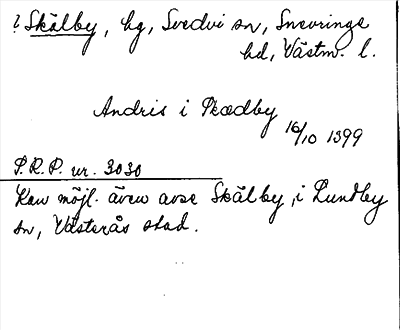 ? Skälby, hg, Svedvi sn, Snevringe
hd, Västm. l.
Andris i Skædby
16/10 1399
S.R.P. nr. 3030
Kan möjl. även avse Skälby, i Lundby
sn, Västerås stad.